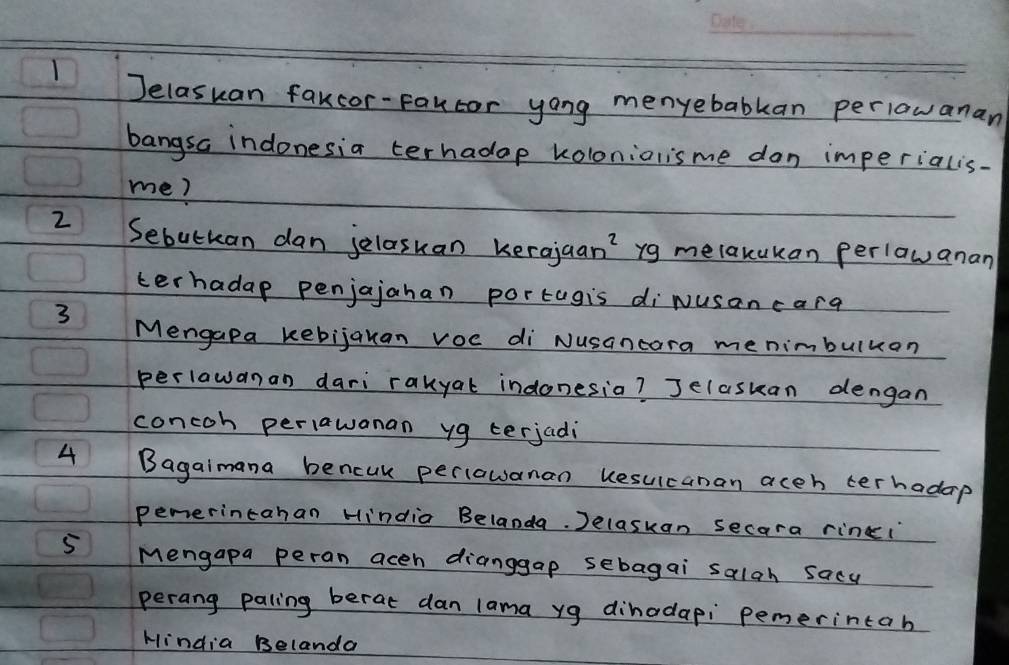 Date
1 Jelaskan faktor-faktor yang menyebabkan perlawanan
bangsa indonesia terhadap kolonialisme dan imperialis-
me?
2 Sebutkan dan jelaskan kerajaan² yg melakukan perlawanan
terhadap penjajahan portugis di Nusantara
3 Mengapa kebijakan voc di Nusantara menimbulkan
perlawanan dari rakyat indonesia? Jelaskan dengan
contoh perlawanan yg terjadi
4 Bagaimana bentuk perlawanan kesultanan aceh terhadap
pemerintahan Hindia Belanda. Jelaskan secara rinci
5 Mengapa peran aceh dianggap sebagai salah satu
perang paling berat dan lama yg dihadapi pemerintah
Hindia Belanda